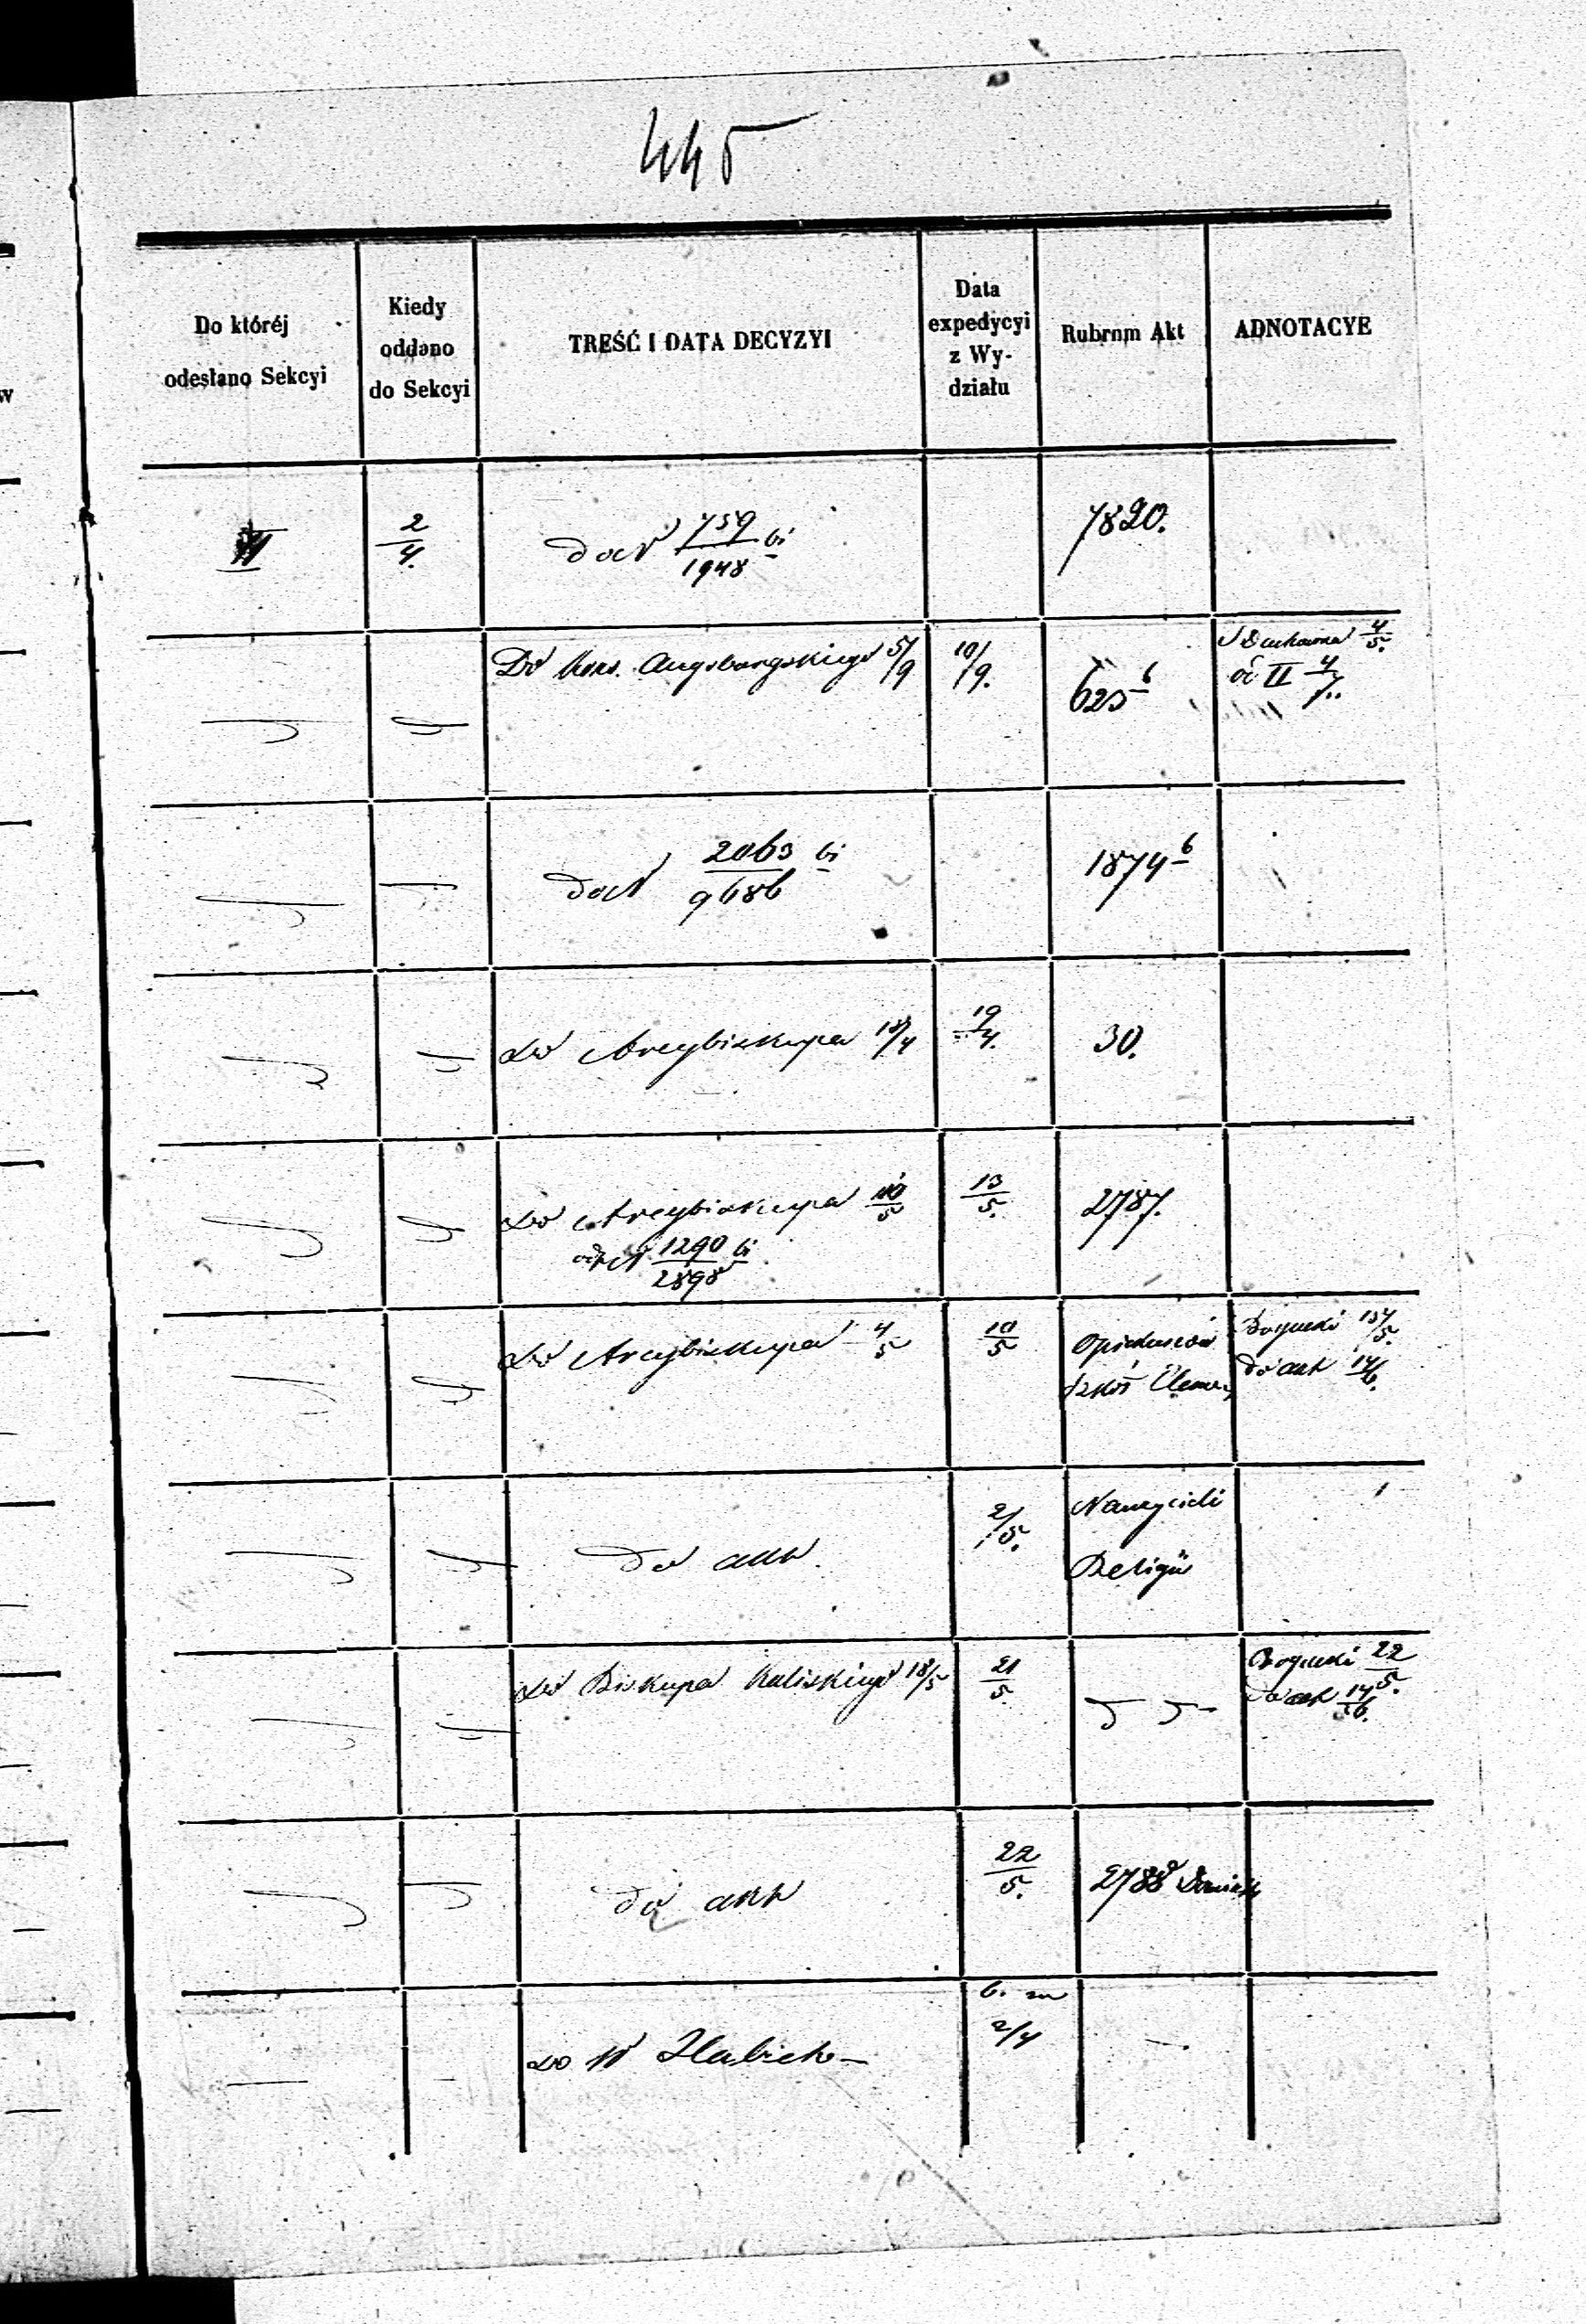 445
Do któréj
odesłano Sekcyi
Kiedy
oddano
do Sekcyi
TREŚĆ I DATA DECYZYI
Data
expedycyi
z Wy-
działu
Rubrum Akt
ADNOTACYE
2/4.
do N 759/1948 bi
7820.
Do Kons. Augsburgskiego 5/9
10/9.
625 6
4/5.
II 4/7.
do N 2063/9686 bi
1874 6
Do Arcybiskupa 18/4
19/4.
30.
Do Arcybiskupa 10/5
ad N 1290/2898 bi
13/5.
2787.
Do Arcybiskupa 4/5
10/5
Opiekunów
szkół Elemen
Bogucki 13/5.
do akt 14/6.
do akt.
2/5.
Nauczyciele
Religii
Do Biskupa Kaliskiego 18/5
21/5
Bogucki 22/5.
do akt 14/6.
do akt
22/5.
2788
Do N
2/4